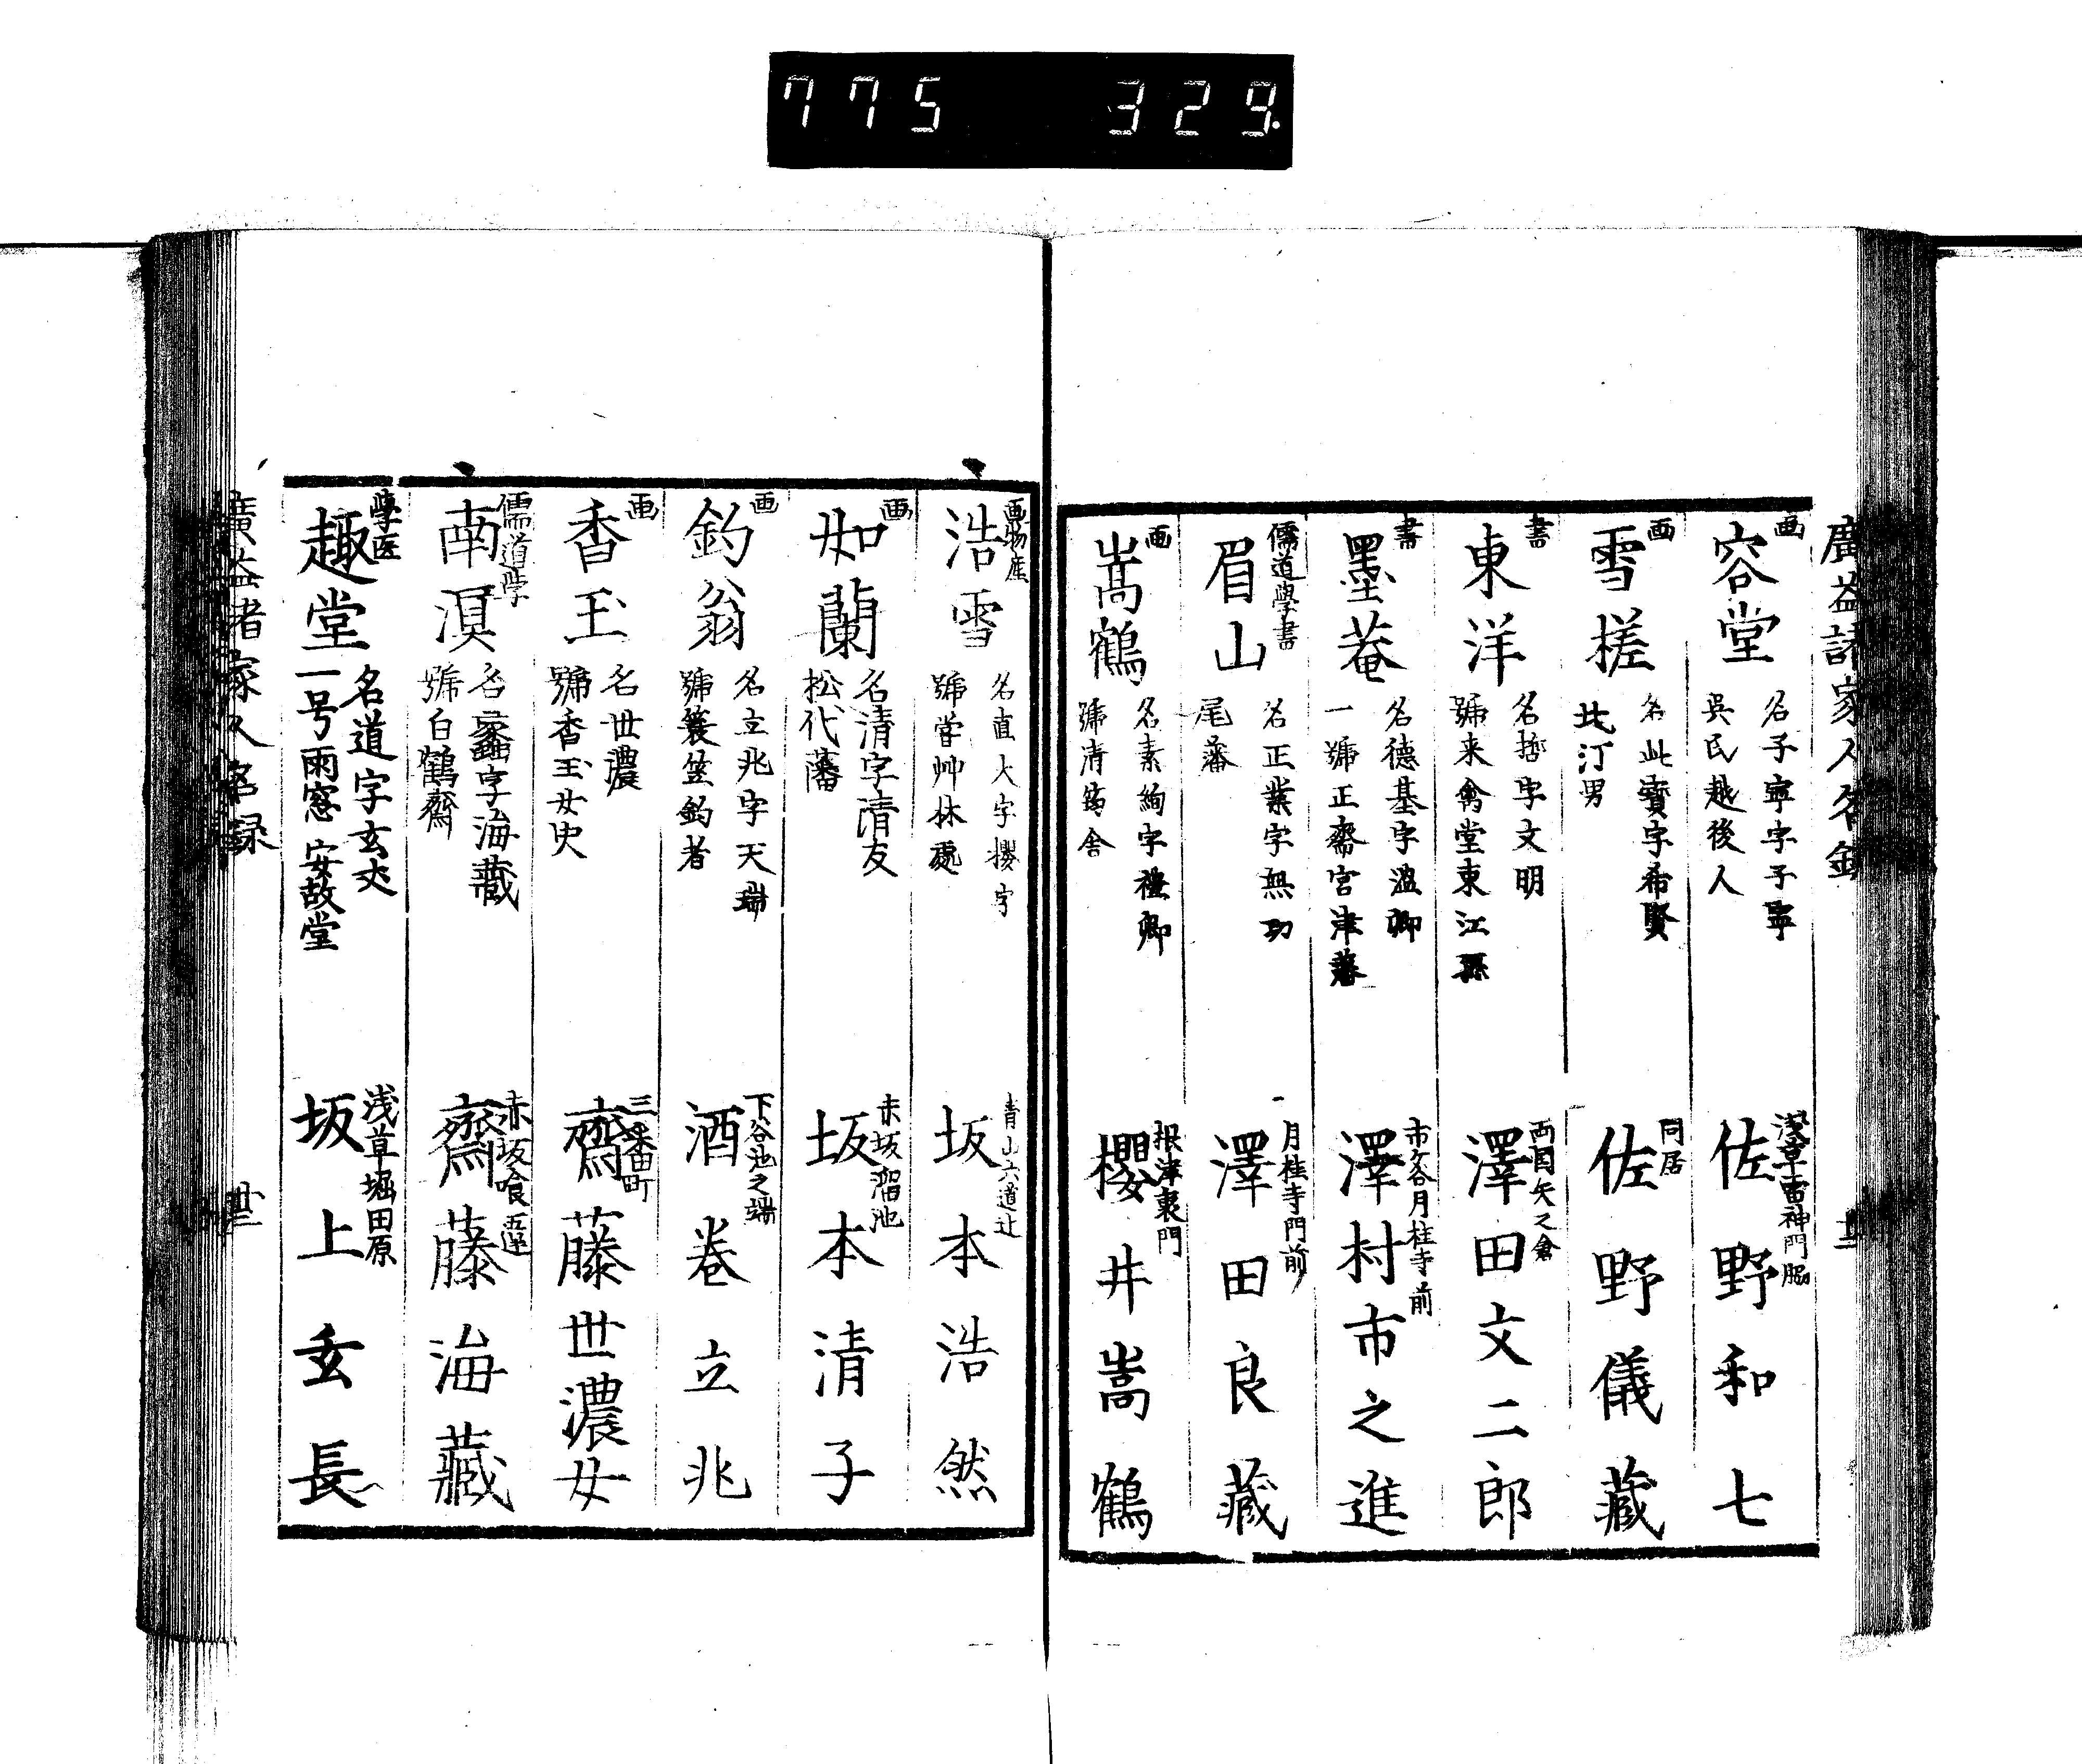 775 329.
廣益諸家人名録
画
容堂
名子寧字子寧
呉氏越後人
浅草雷神門脇
佐野和七
画
雪槎
名此寶字希賢
北汀男
同居
佐野儀藏
書
東洋
名哲字文明
號来禽堂東江孫
両国矢之倉
澤田文二郎
書
墨菴
名德基字温卿
一號正齋宮津藩
市ヶ谷月桂寺前
澤村市之進
儒道學書
眉山
名正業字無功
尾藩
月桂寺門前
澤田良藏
画
嵩鶴
名素絢字禮卿
號清舎
根津裏門
櫻井嵩鶴
画物産
浩雪
名直大字櫻宇
號甞艸林處
青山六道辻
坂本浩然
画
如蘭
名清字清友
松代藩
赤坂溜池
坂本清子
画
釣翁
名立兆字天瑞
號簑笠釣者
下谷池之端
酒巻立兆
画
香玉
名世濃
號香玉女史
三番町
齋藤世濃女
儒道學
南溟
名蠡字海藏
號白鶴齋
赤坂喰違
齋藤海藏
學医
趣堂
名道字玄夾
一号雨窓 安故堂
浅草堀田原
坂上玄長
廣益諸家人名録
卅三